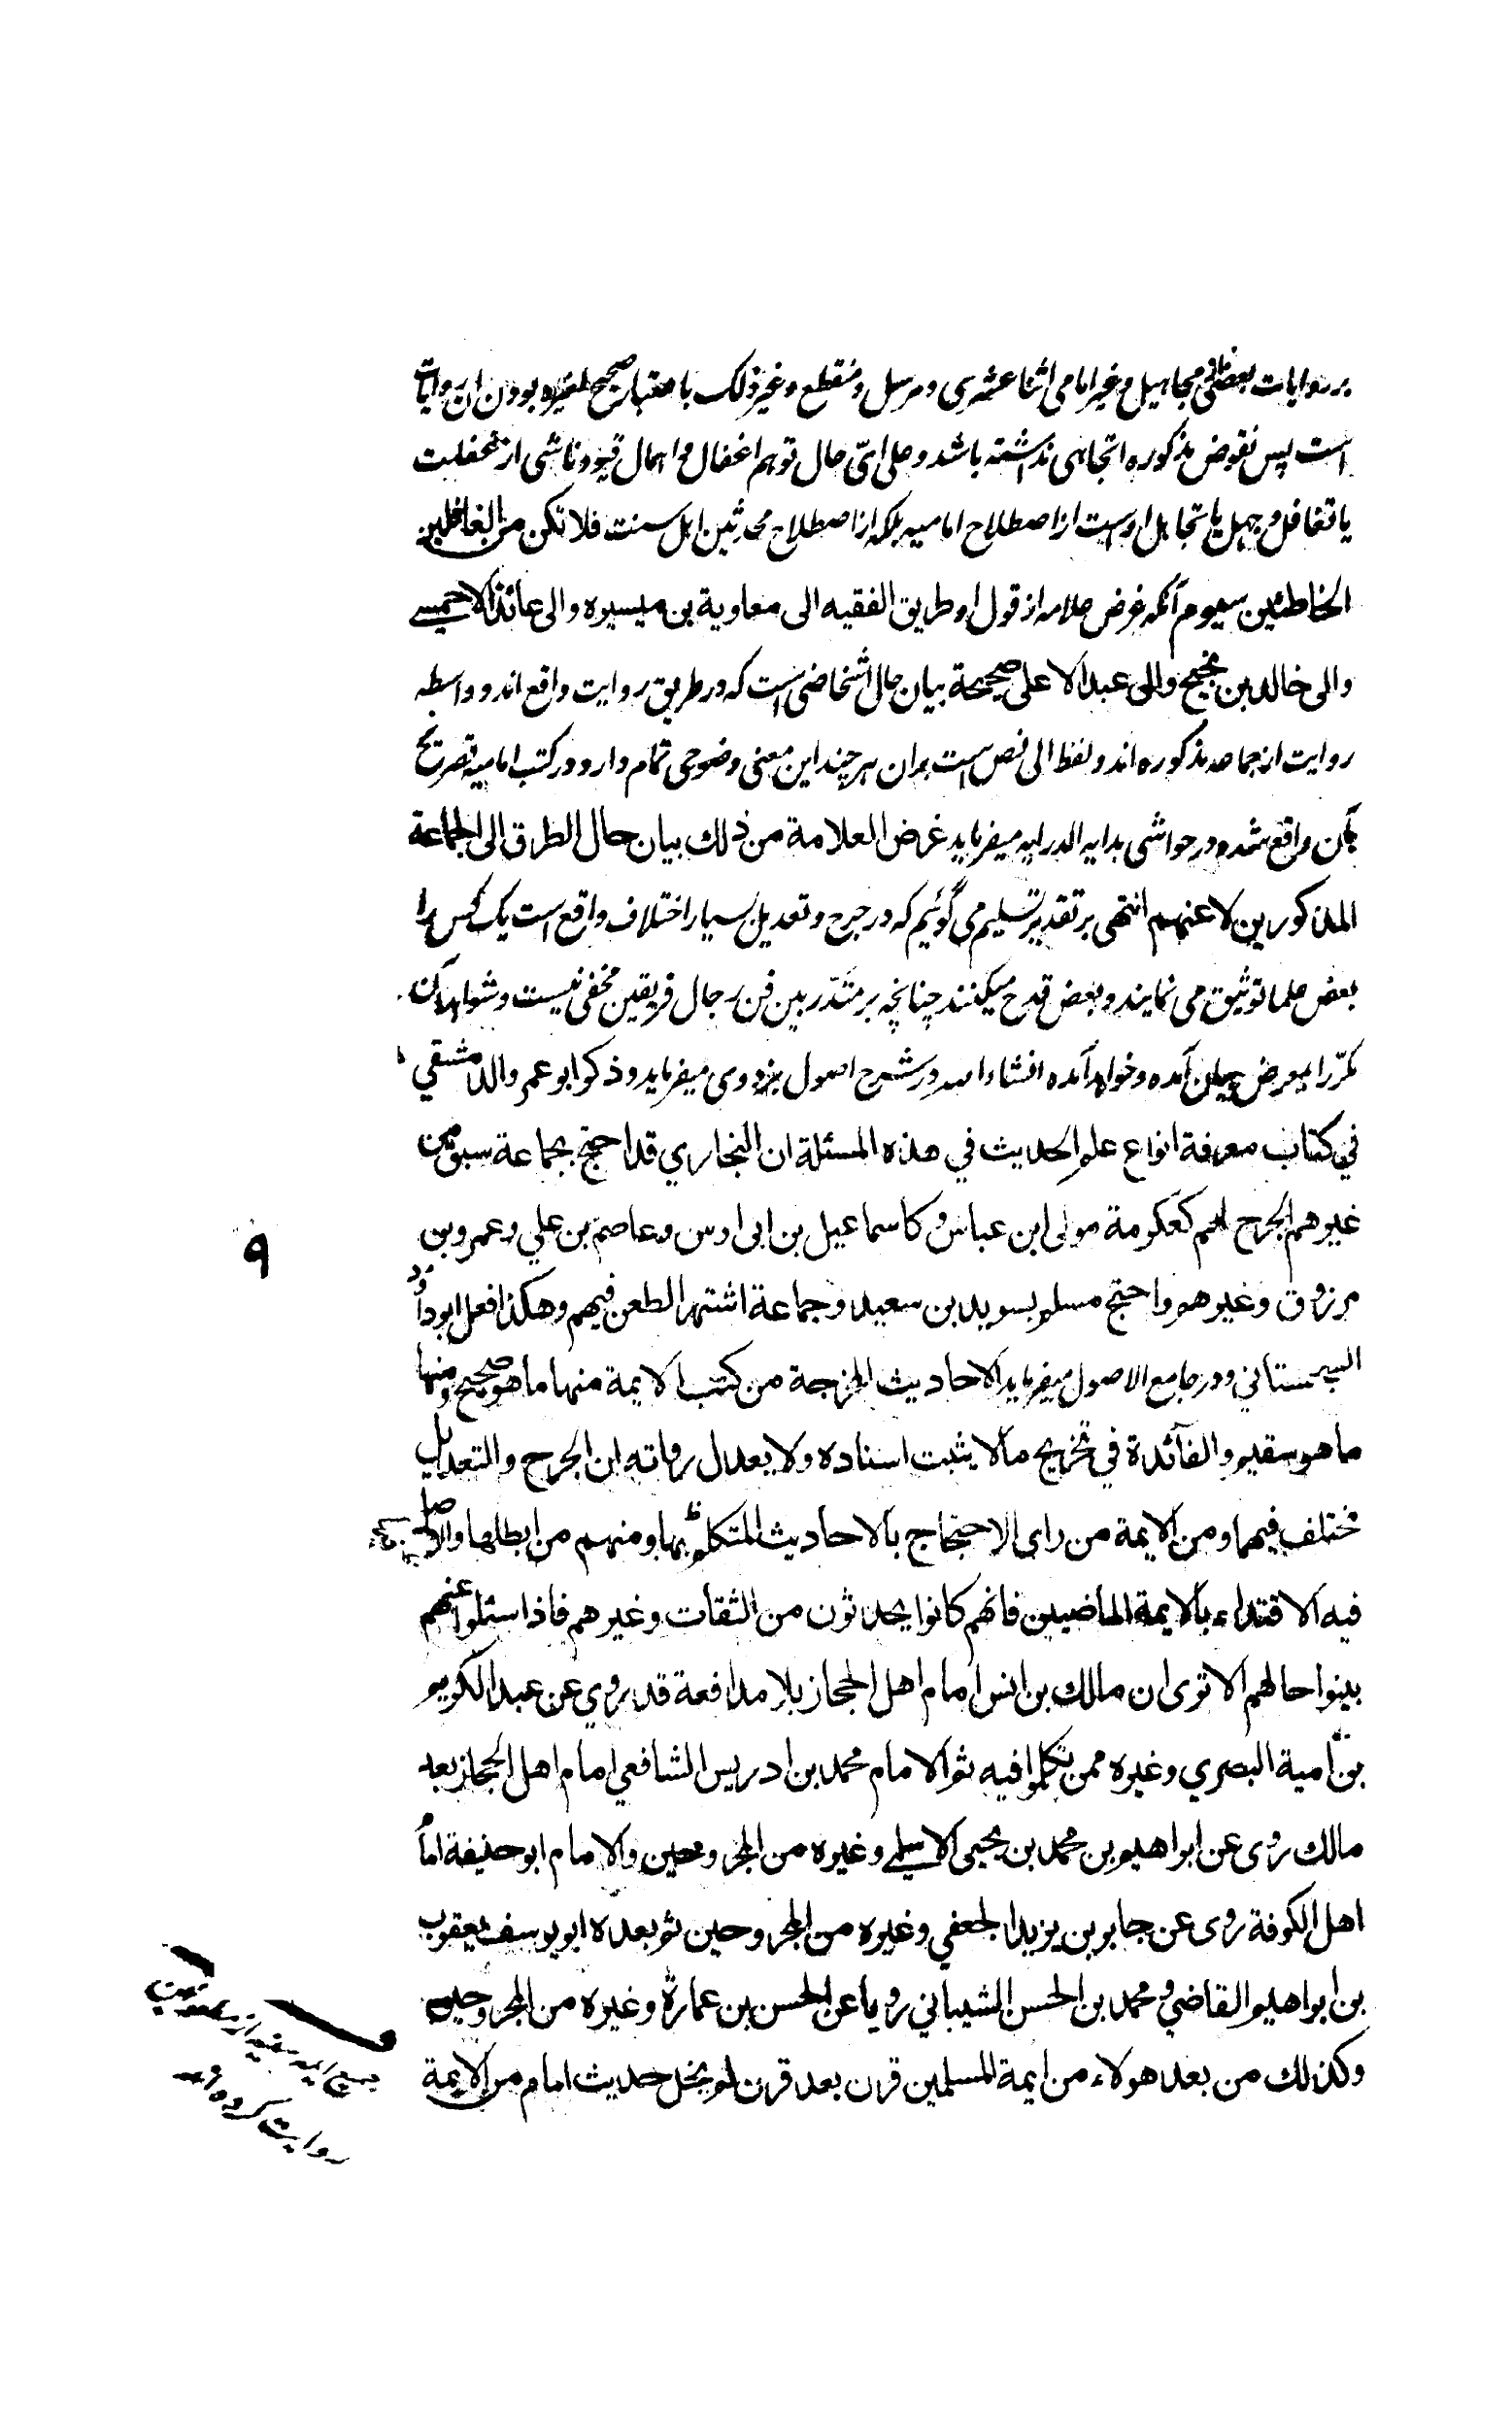 بر روایات بعضی مجاهیل و غیر امامی اثنا عشری و مرسل و منقطع و غیر ذلک باعتبار صحیح لغیره بودن ان روایات
است پس نقوض مذکوره اتجاهی نداشته باشد و علی ایّ حال توهم اغفال و اهمال قیود ناشی از غفلت
یا تغافل و جهل یا تجاهل اوست از اصطلاح امامیه بلکه از اصطلاح محدثین اهل سنت فلا تکن من الغافلین
الخاطئین سیوم آنکه غرض علامه از قول او طریق الفقیه الی معاویة بن میسره والی عائذ الاحمسی
والی خالد بن نجیح والی عبد الاعلی صحیحة بیان حال اشخاصی است که در طریق روایت واقع اند و واسطه
روایت از جماعه مذکوره اند و لفظ الی نص است بران هر چند این معنی وضوحی تمام دارد و در کتب امامیه تصریح
بآن واقع شده در حواشی بدایه الدرایه میفرماید غرض العلامة من ذلك بیان حال الطرق الی الجماعة
المذکورین لا عنهم انتهی بر تقدیر تسلیم می گوئیم که در جرح و تعدیل بسیار اختلاف واقع است یک کس را
بعض علما توثیق می نمایند و بعض قدح میکنند چنانچه بر متدربین فن رجال فریقین مخفی نیست و شواهد آن
مکرّرا بمعرض بیان آمده و خواهد آمده انشاء الله در شرح اصول بزدوی میفرماید و ذکر ابو عمرو الدمشقي
في کتاب معرفة انواع علم الحدیث في هذه المسئلة ان البخاري قد احتج بجماعة سبق من
غیرهم الجرح لهم کعکرمة مولی ابن عباس و کاسماعیل بن ابی اوس و عاصم بن علي و عمرو بن
مرزوق و غیرهم واحتج مسلم بسوید بن سعید و جماعة اشتهر الطعن فیهم و هکذا فعل ابو داؤد
السجستاني و در جامع الاصول میفرماید الاحادیث المخرجة من کتب الایمة منها ما هو صحیح و منها
ما هو سقیم والفائدة في تخریج مالا یثبت اسناده ولا یعدل رواته ان الجرح والتعدیل
مختلف فیهما و من الایمة من رای الاحتجاج بالاحادیث المتکلم بها و منهم من ابطلها والاصل
فیه الاقتداء بالایمة الماضیین فانهم کانوا یحدثون من الثقات و غیرهم فاذا سئلوا عنهم
بینوا حالهم الا تری ان مالك بن انس امام اهل الحجاز بلا مدافعة قد روي عن عبد الکریم
بن امیة البصري و غیره ممن تکلموا فیه ثم الامام محمد بن ادریس الشافعي امام اهل الحجاز بعد
مالك روی عن ابراهیم بن محمد بن یحیی الاسلمي و غیره من المجروحین والامام ابو حنیفة امام
اهل الکوفة روی عن جابر بن یزید الجعفي و غیره من المجروحین ثم بعده ابو یوسف یعقوب
بن ابراهیم القاضي و محمد بن الحسن الشیباني رویا عن الحسن بن عمارة و غیره من المجروحین
وکذلك من بعد هولاء من ایمة المسلمین قرن بعد قرن لم یخل حدیث امام من الایمة
۹
روایت کرده اند